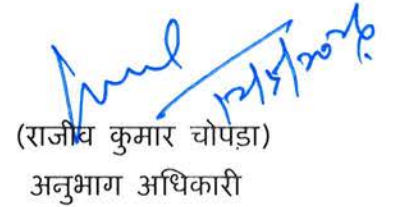 (राजीव कुमार चोपड़ा)
अनुभाग अधिकारी